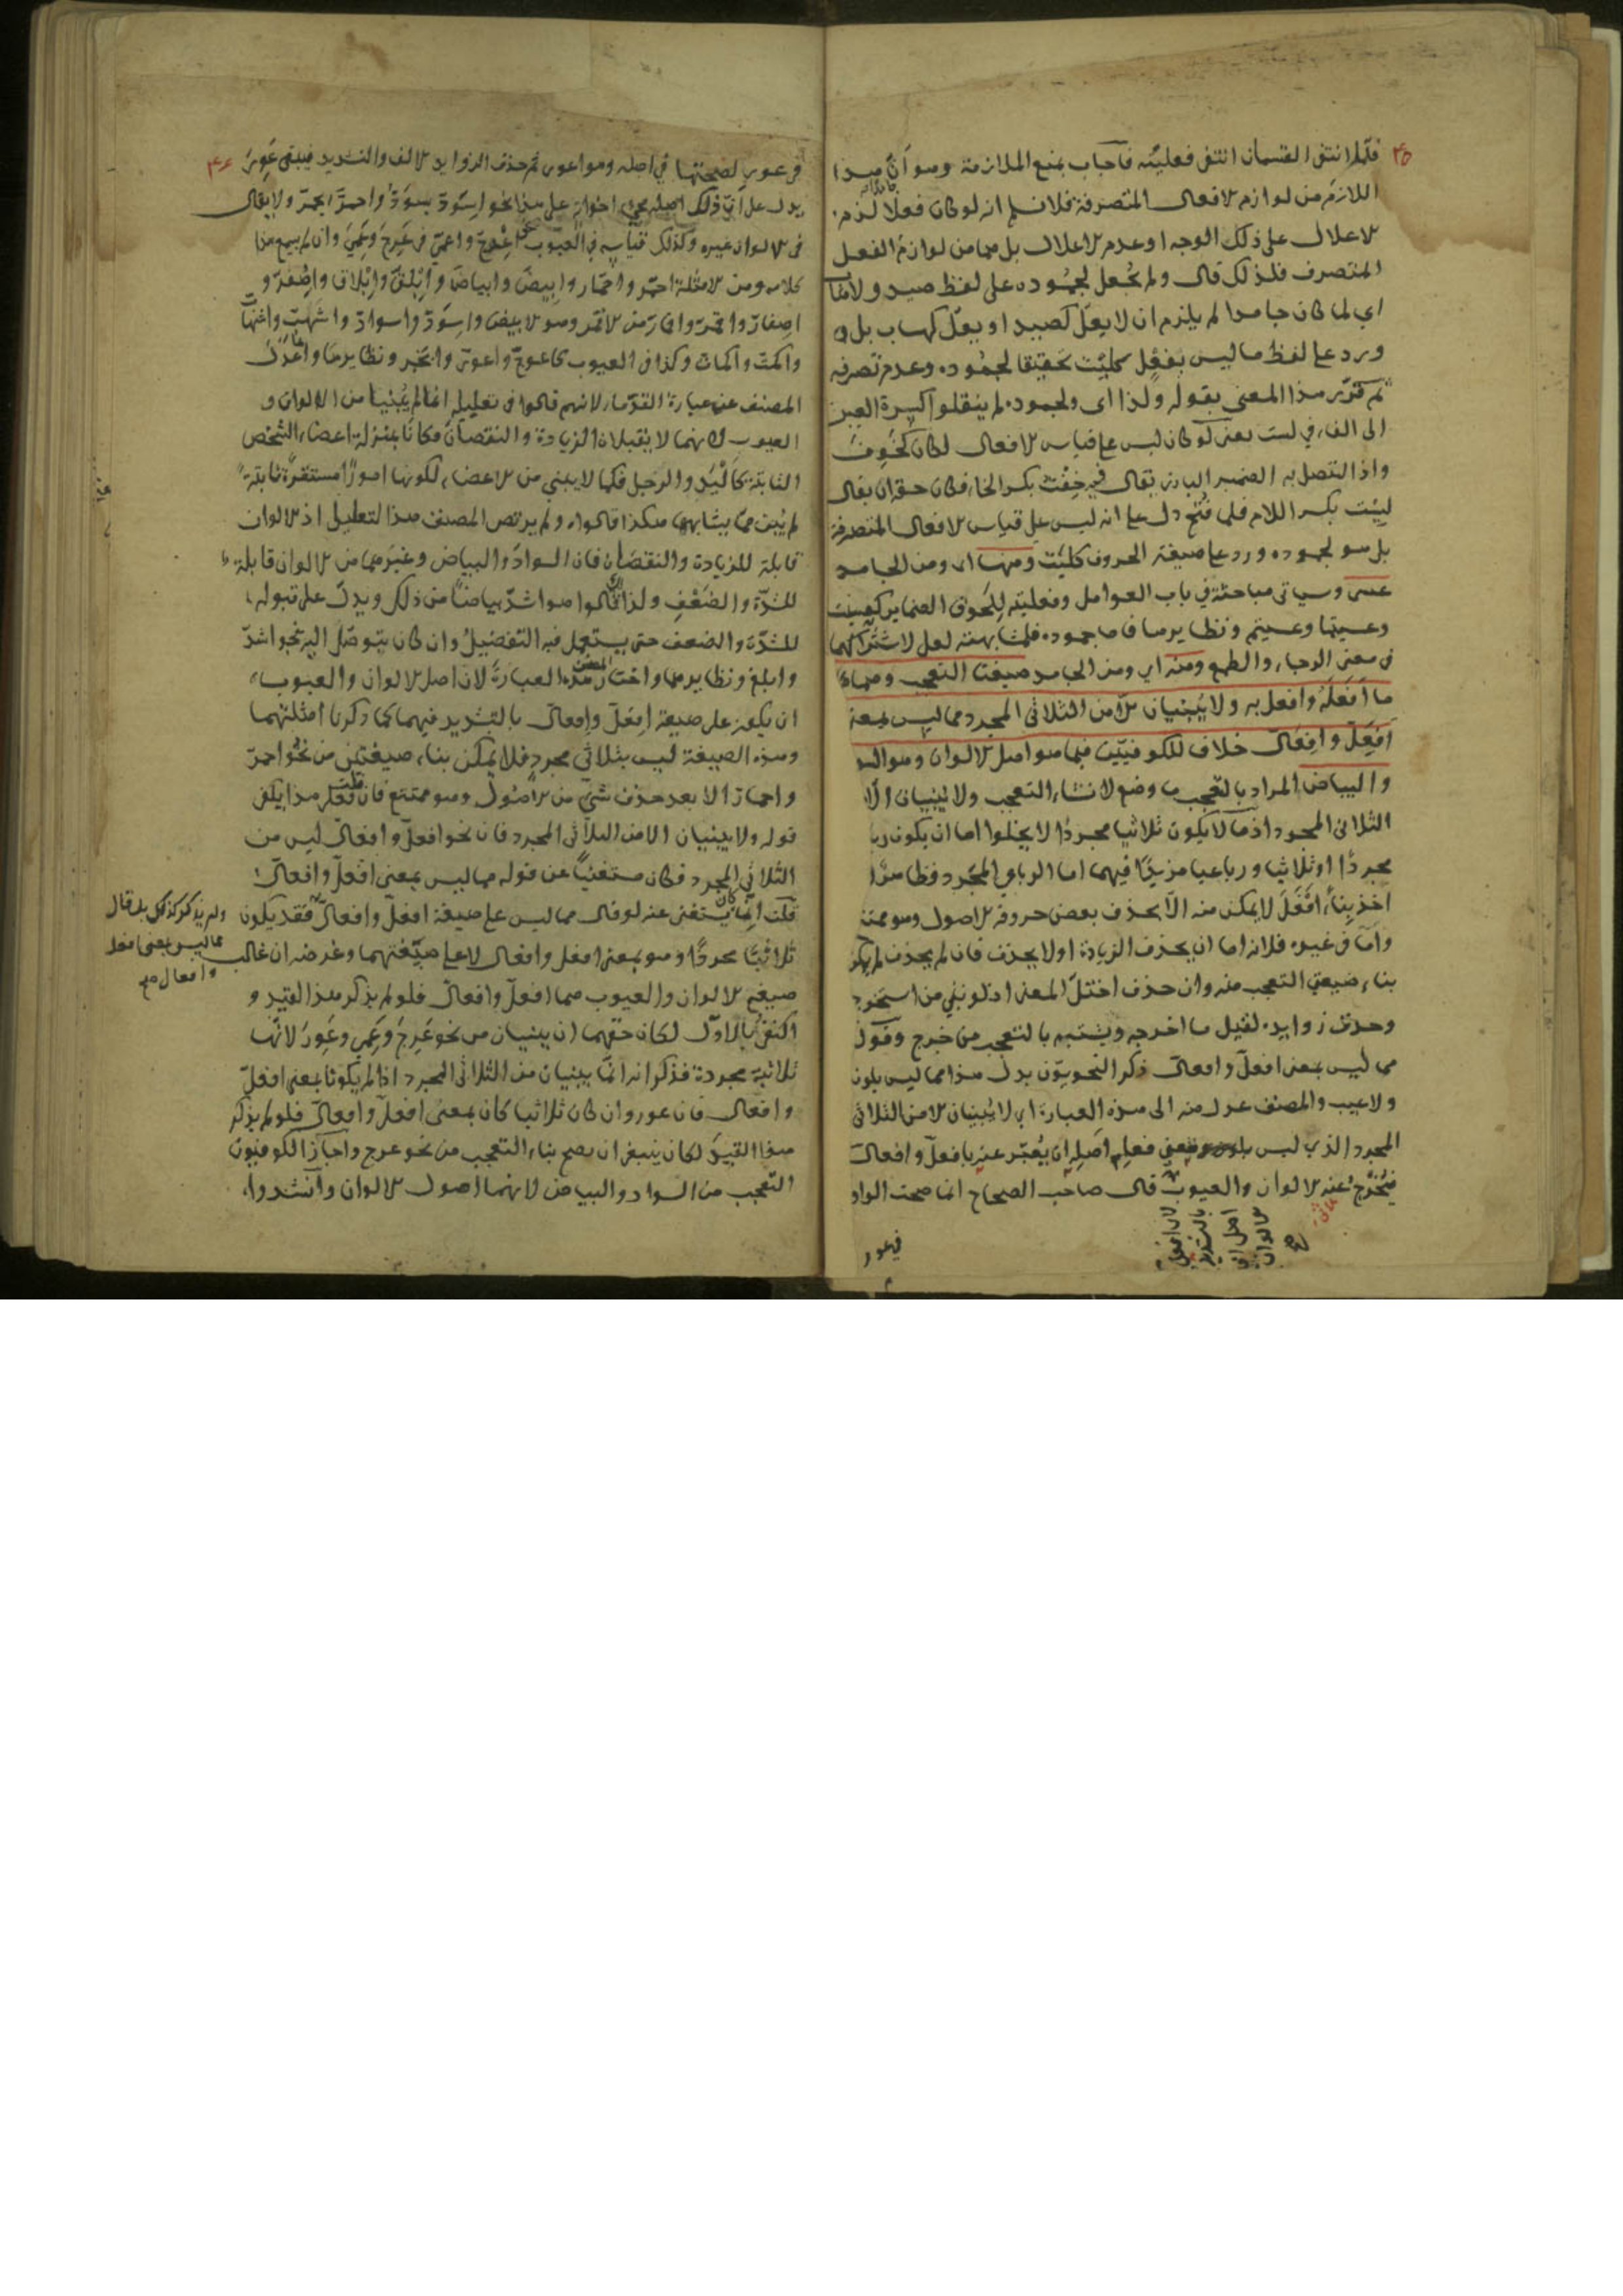 ٣٥
فلما انتفى القسمان انتفى فعليته فأجاب بمنع الملازمة وهو أن هذا
اللازم من لوازم الافعال المتصرفة فلا نسلم انه لو كان فعلا لزم
الاعلال على ذلك الوجه او عدم الاعلال بل هما من لوازم الفعل
المتصرف فلذلك قال ولم يجعل لجموده على لفظ صيد ولا هاب
اي لما كان جامدا لم يلزم ان لا يعل كصيد او يعل كهاب بل
ورد على لفظ ما ليس بفعل كليت تحقيقا لجموده وعدم تصرفه
ثم قرر هذا المعنى بقوله ولذا اى ولجموده لم ينقلوا كسرة العين
الى الفاء في لست يعنى لو كان ليس على قياس الافعال لكان كخوف
واذا اتصل به الضمير البارز يقال فيه خفت بكسر الخاء فكان حقه ان يقال
ليست بكسر اللام فلما فتح دل على انه ليس على قياس الافعال المتصرفة
بل هو لجموده ورد على صيغة الحروف كليت ومنها اى ومن الجامد
عسى وسياتى مباحثه في باب العوامل وفعليته للحوق الضماير كعسيت
وعسيتما وعسيتم ونظايرها فاما جموده فلمشابهته لعل لاشتراكهما
فى معنى الرجاء والطمع ومنه اى ومن الجامد صيغتا التعجب وهما
ما افعله وافعل به ولا يبنيان الا من الثلاثى المجرد مما ليس بمعنى
افعل وافعال خلافا للكوفيين فيما هو اصل الالوان وهو السواد
والبياض المراد بالتعجب ما وضع لانشاء التعجب ولا يبنيان الا
الثلاثى المجرد اذ ما لا يكون ثلاثيا مجردا لا يخلوا اما ان يكون
مجردا او ثلاثيا ورباعيا مزيدا فيهما اما الرباعى المجرد فظاهر
اخذ بناء افعل لا يمكن منه الا بحذف بعض حروفه الاصول وهو ممتنع
واما فى غيره فلانه اما ان يحذف الزيادة او لا يحذف فان لم يحذف لم يكن
بناء صيغتى التعجب منه وان حذف اختل المعنى اذ لو بنى من استخرج
وحذف زوايده لقيل ما اخرجه ويشتبه بالتعجب من خرج وقوله
مما ليس بمعنى افعل وافعال ذكر النحويون بدل هذا مما ليس بلون
ولا عيب والمصنف عدل منه الى هذه العبارة اى لا يبنيان الا من الثلاثى
المجرد الذى ليس بمعنى فعل اصله ان يعبر عنه بافعل وافعال
فيخرج عنه الالوان والعيوب قال صاحب الصحاح انما صحت الواو
فى عور
٣٦
فى عور لصحتها فى اصله وهو اعور ثم حذف الزوايد الالف والتشديد فيبقى عور
يدل على ان ذلك اصله مجىء اخواته على هذا نحو اسود يسود واحمر يحمر ولا يقال
فى الالوان غيره وكذلك قياسه فى العيوب اعرج واعمى فى عرج وعمى وان لم يسمع هذا
كلامه ومن الامثلة احمر واحمار وابيض وابياض وابلق وابلاق واصفر و
اصفار واقمر واقمار من الاقمر وهو الابيض واسود واسواد واشهب واشهاب
واكمت واكمات وكذا فى العيوب كاعوج واعور ونظايرها وانما عدل
المصنف عن عبارة القدماء لانهم قالوا فى تعليله انما لم يبنيا من الالوان و
العيوب لانهما لا يقبلان الزيادة والنقصان فكانا بمنزلة اعضاء الشخص
الثابتة كاليد والرجل فكما لا يبنى من الاعضاء لكونها امورا مستقرة ثابتة
لم يبن مما يشابهها هكذا قالوا ولم يرتض المصنف هذا التعليل اذ الالوان
قابلة للزيادة والنقصان فان السواد والبياض وغيرهما من الالوان قابلة
للشدة والضعف ولذا قالوا هو اشد بياضا من ذلك ويدل على قبوله
للشدة والضعف حتى يستعمل فيه التفضيل وان كان يتوصل اليه بنحو اشد
وابلغ ونظايرهما واختار المصنف هذه العبارة لان اصل الالوان والعيوب
ان يكون على صيغة افعل وافعال بالتشديد فيهما كما ذكرنا امثلتهما
وهذه الصيغة ليس بثلاثى مجرد فلا يمكن بناء صيغتين من نحو احمر
واحمار الا بعد حذف شىء من الاصول وهو ممتنع فان قلت فعلى هذا يكفى
قوله ولا يبنيان الا من الثلاثى المجرد فان نحو افعل وافعال ليس من
الثلاثى المجرد فكان مستغنيا عن قوله مما ليس بمعنى افعل وافعال
قلت انما كان يستغنى عنه لو قال مما ليس على صيغة افعل وافعال فقد يكون
ثلاثيا مجردا وهو بمعنى افعل وافعال لا على صيغتهما وغرضه ان غالب
صيغ الالوان والعيوب هما افعل وافعال فلو لم يذكر هذا القيد و
اكتفى بالاول لكان حقهما ان يبنيان من نحو عرج وعمى وعور لانها
ثلاثية مجردة فذكر انه انما يبنيان من الثلاثى المجرد اذا لم يكونا بمعنى افعل
وافعال فان عور وان كان ثلاثيا كان بمعنى افعل وافعال فلو لم يذكر
هذا القيد لكان ينبغى ان يصح بناء التعجب من نحو عرج واجاز الكوفيون
التعجب من السواد والبياض لانهما اصول الالوان وانشدوا
ولم يذكر كذلك بل قال
مما ليس بمعنى افعل
وافعال صح